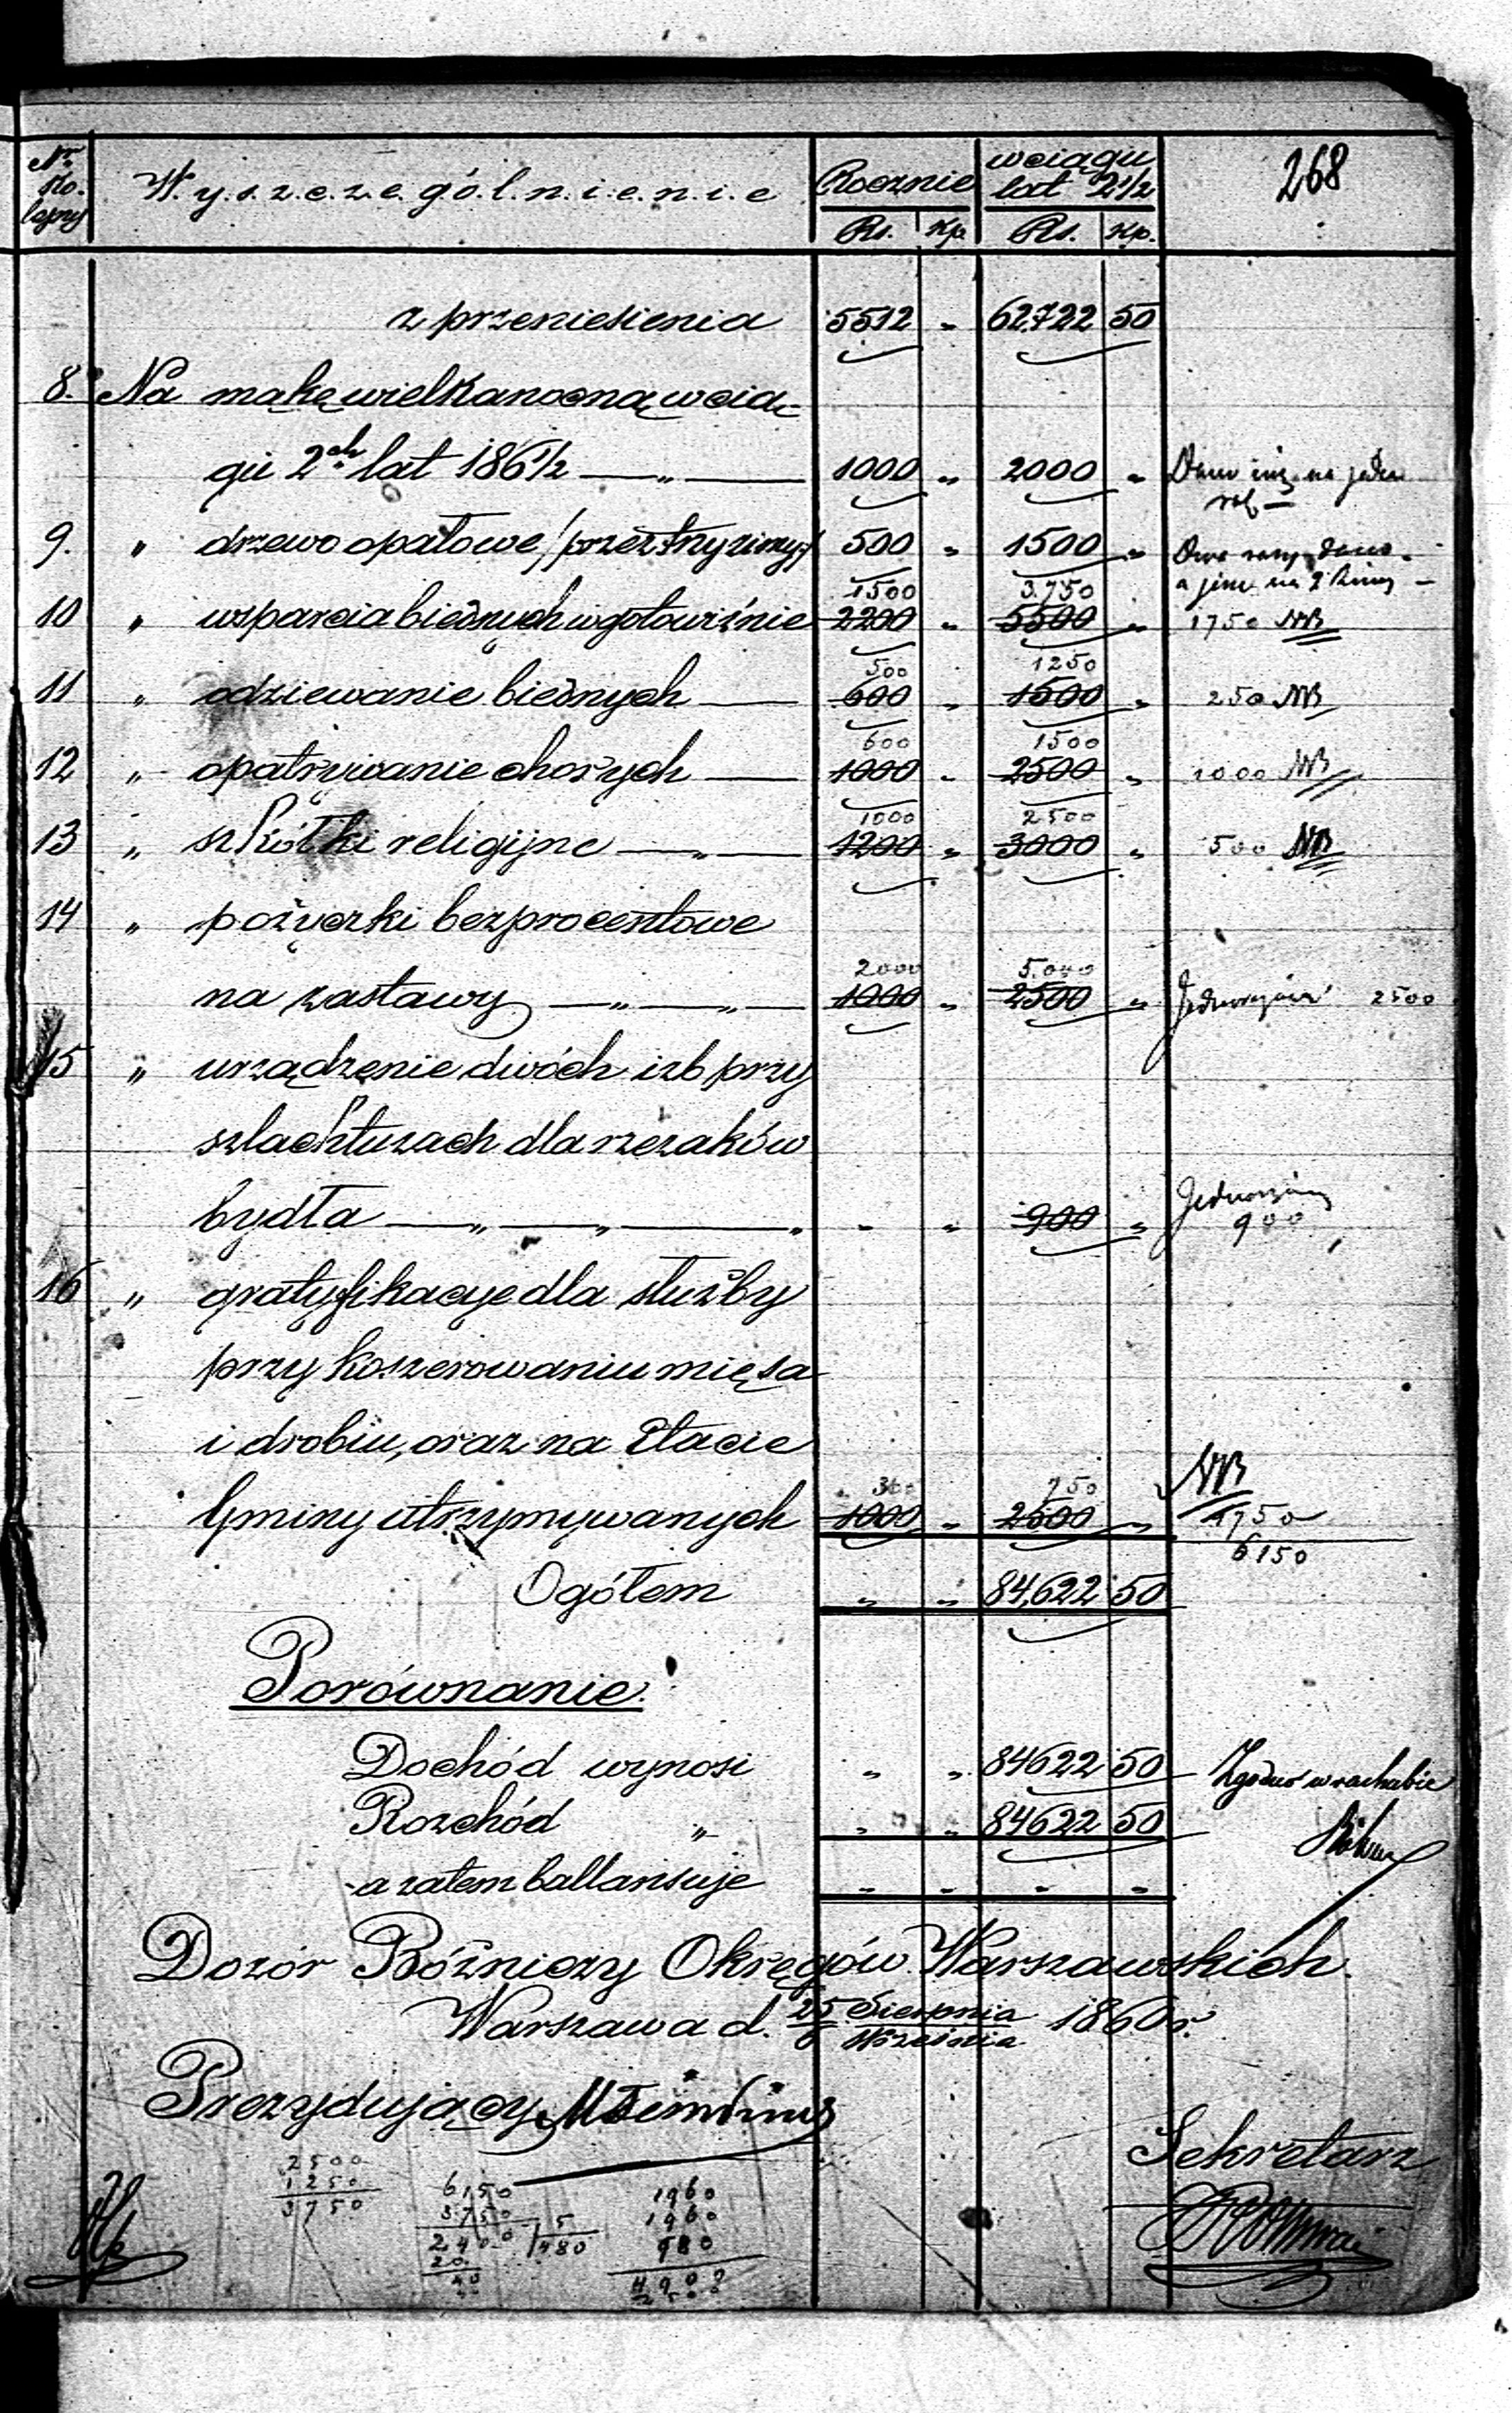 268
Nr. Ko- W.y.s.z.c.z.e.g.ó.l.n.i.e.n.i.e Rocznie w ciągu lat 2½
lejny Rs. Kp. Rs. Kp.
z przeniesienia 5512 " 62,722 50
8. Na mąkę wielkanocną w cią-
gu 2ch lat 186½ —"— 1000 " 2000 " na jeden
rok —
9. " drzewo opałowe /przez trzy zimy/ 500 " 1500 " Dwa razy dano
1500 3.750 a jeszcze na 2 zimy —
10 " wsparcia biednych w gotowiźnie 2200 " 5500 " 1750 NB
500 1250
11 " odziewanie biednych — 600 " 1500 " 250 NB
600 1500
12 " opatrywanie chorych — 1000 " 2500 " 1000 NB
1000 2500
13 " szkółki religijne —"— 1200 " 3000 " 500 NB
14 " pożyczki bezprocentowe
2000 5.000
na zastawy —"—"— 1000 " 2500 " 2500
15 " urządzenie dwóch izb przy
szlachtuzach dla rzezaków
bydła —"—"—" " " 900 " 900
16 " gratyfikacye dla służby
przy koszerowaniu mięsa
i drobiu, oraz na Etacie
300 750 NB
Gminy utrzymywanych 1000 " 2500 " 1750
6150
Ogółem " " 84,622 50
Porównanie.
Dochód wynosi " " 84622 50 Zgodno w rachubie
Rozchód " " " 84622 50
a zatem ballansuje " " " "
Dozór Bóżniczy Okręgów Warszawskich.
Warszawa d. 25 Sierpnia / 6 Września 1860 r.
Prezydujący
Sekretarz
2500
1250
3750
6150
3750
2400 5
480
20
40
1960
1960
980